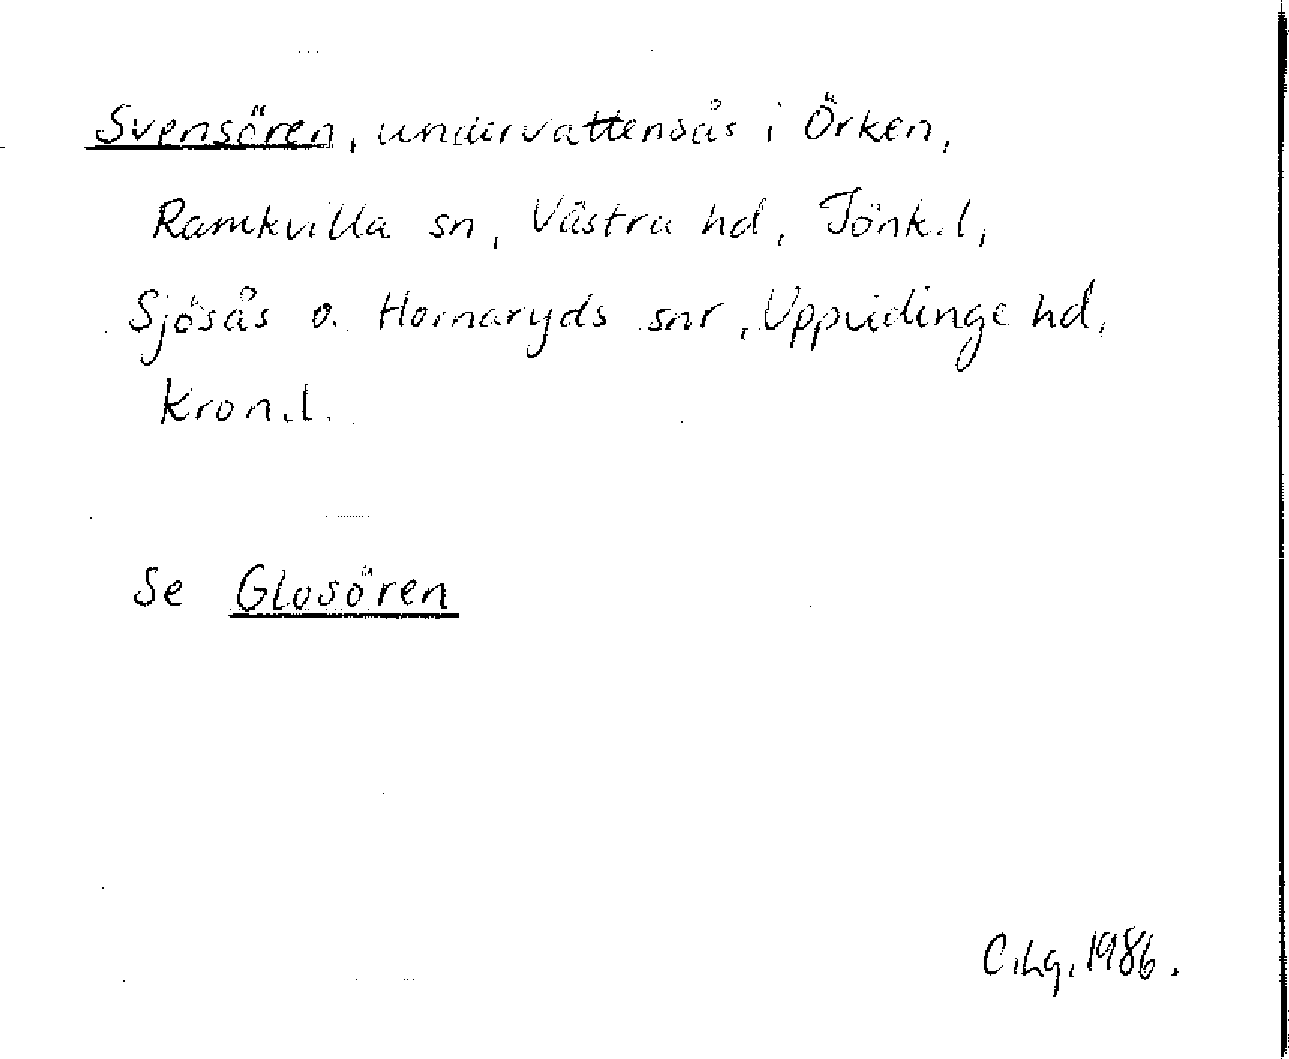 Svensören, undervattensås i Örken,
Ramkvilla sn, Västra hd, Jönk.l,
Sjösås o. Hornaryds snr, Uppvidinge hd,
Kron.l.
Se Glosören
C.Lg. 1986.